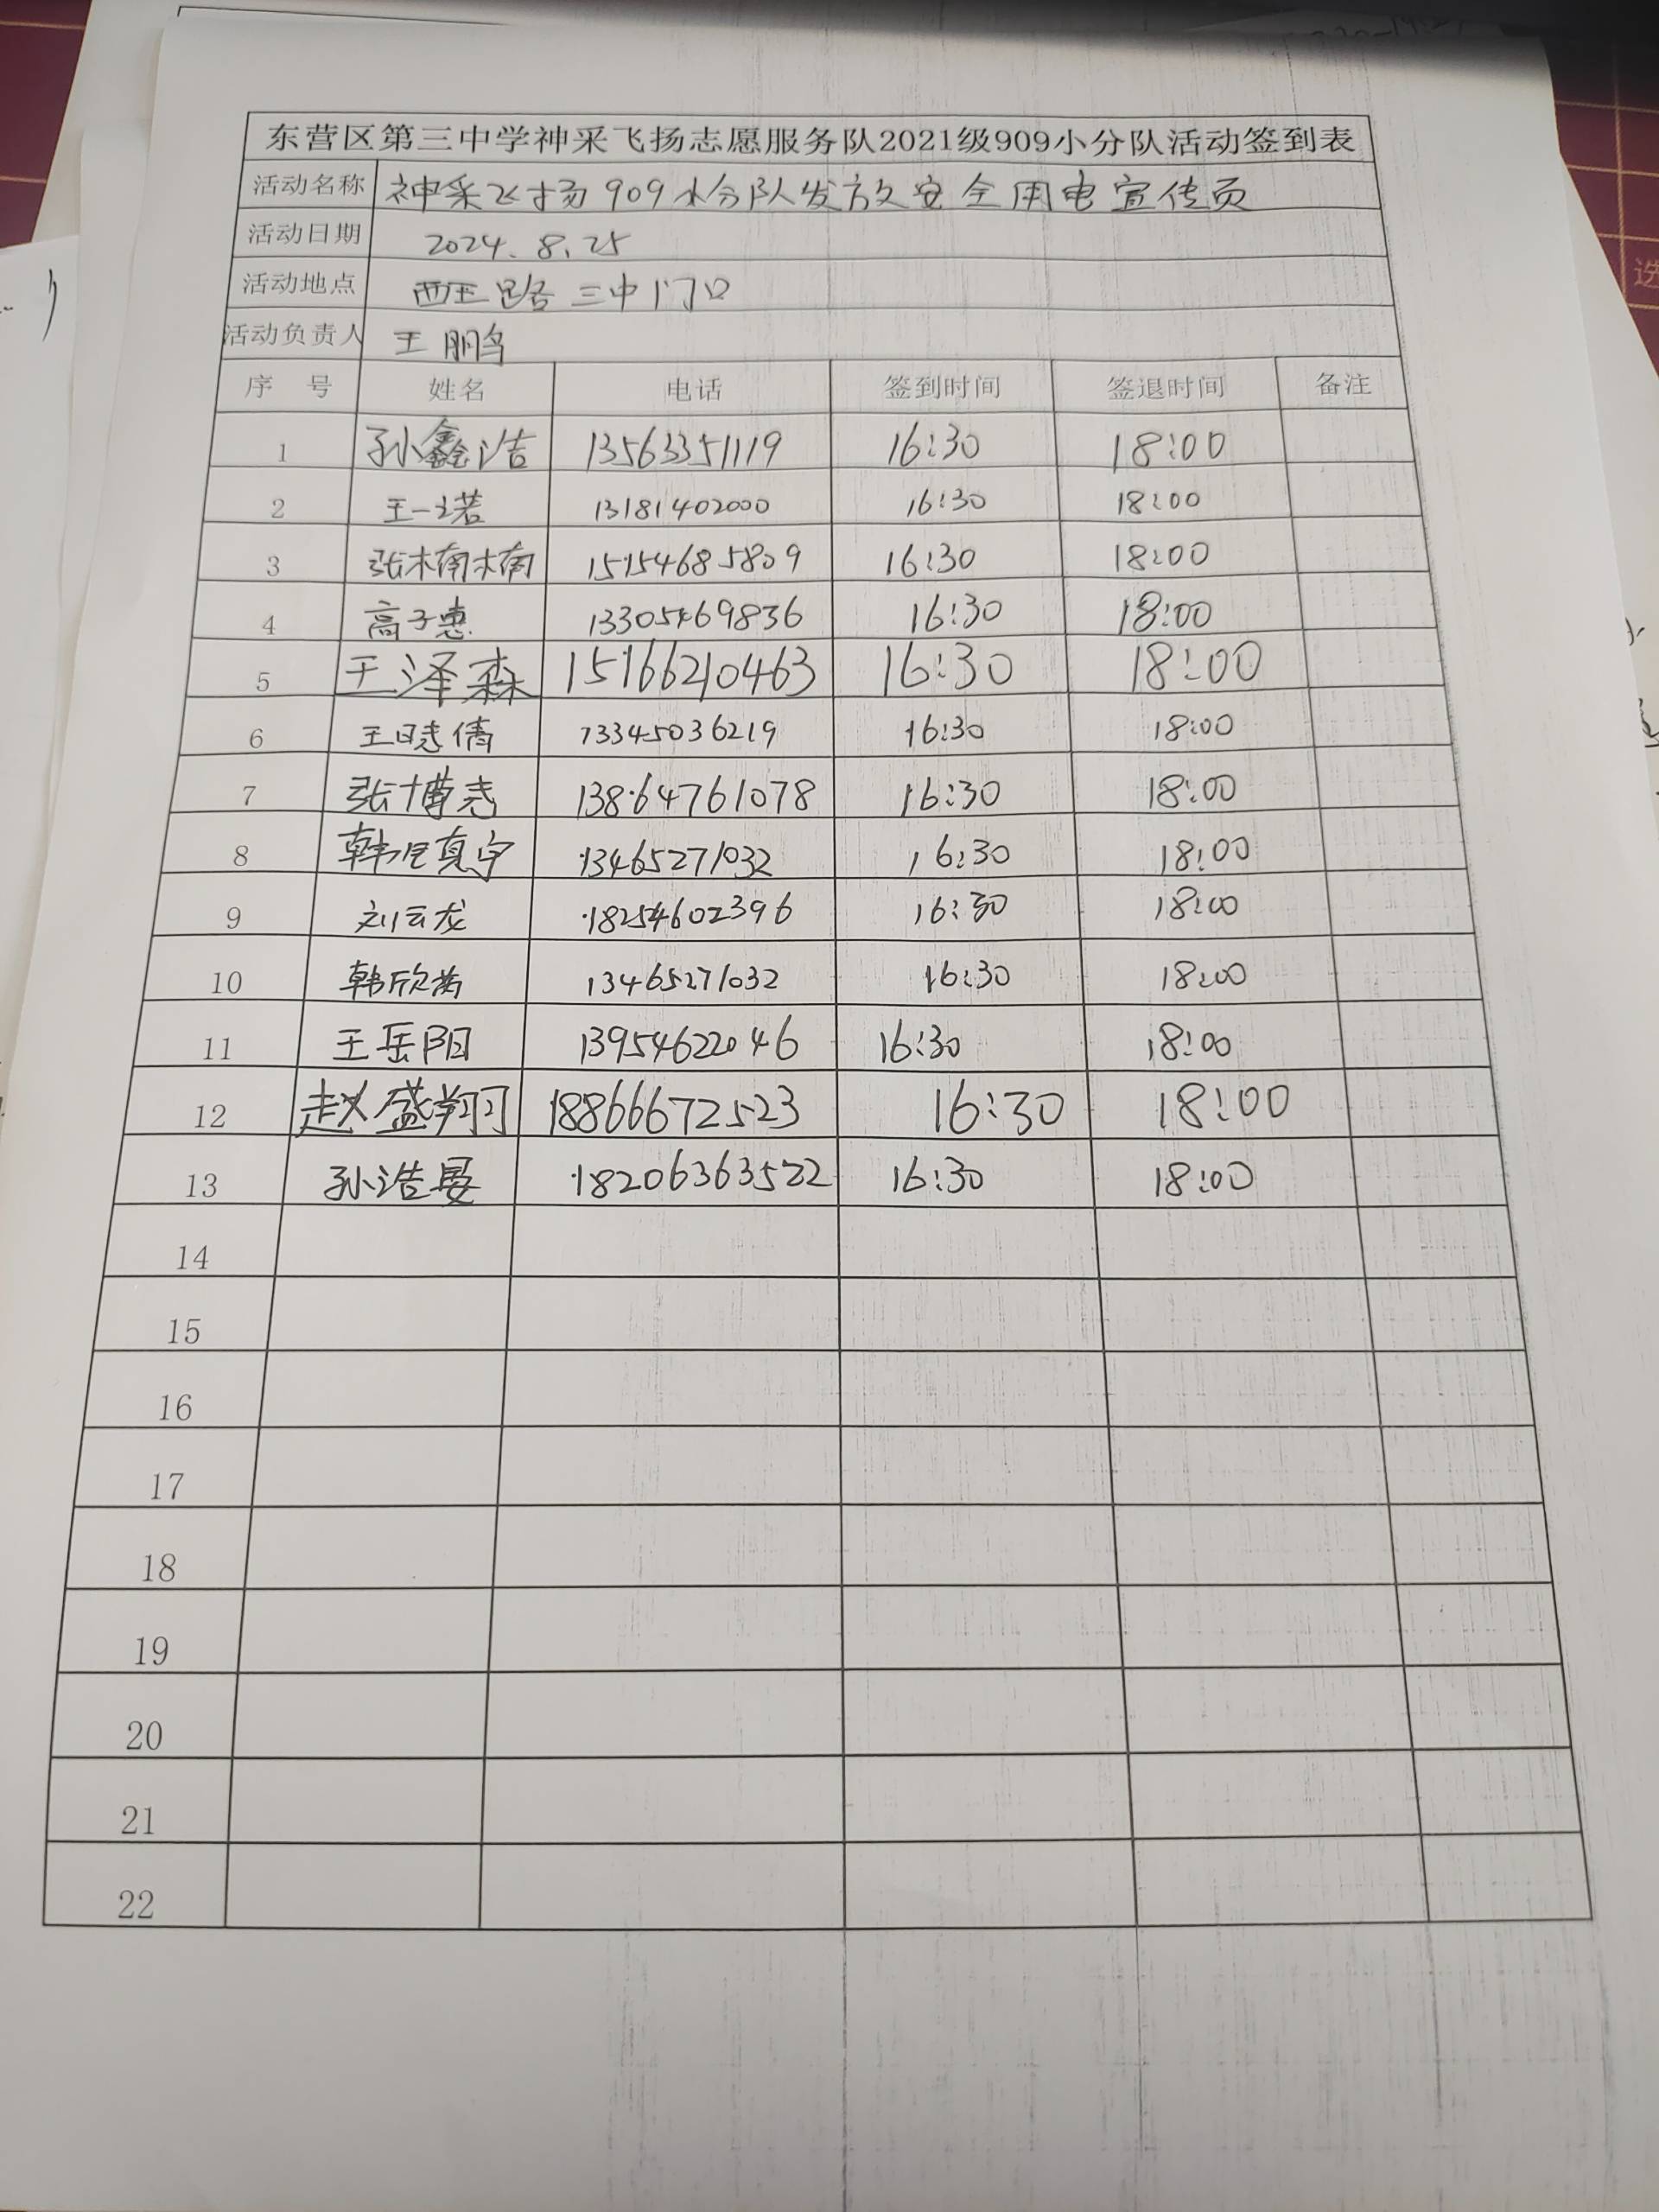 东营区第三中学神采飞扬志愿服务队2021级909小分队活动签到表
活动名称 神采飞扬909小分队发放安全用电宣传页
活动日期 2024.8.25
活动地点 西王路三中门口
活动负责人 王鹏
序 号 姓名 电话 签到时间 签退时间 备注
1 孙鑫浩 13563351119 16:30 18:00
2 王一诺 13181402000 16:30 18:00
3 张楠楠 15154685809 16:30 18:00
4 高子惠 13305469836 16:30 18:00
5 王泽森 15166210463 16:30 18:00
6 王晓倩 13345036219 16:30 18:00
7 张博尧 13864761078 16:30 18:00
8 13465271032 16:30 18:00
9 刘云龙 18254602396 16:30 18:00
10 13465271032 16:30 18:00
11 王岳阳 13954622046 16:30 18:00
12 赵盛翔 18866672523 16:30 18:00
13 孙浩晏 18206363522 16:30 18:00
14
15
16
17
18
19
20
21
22